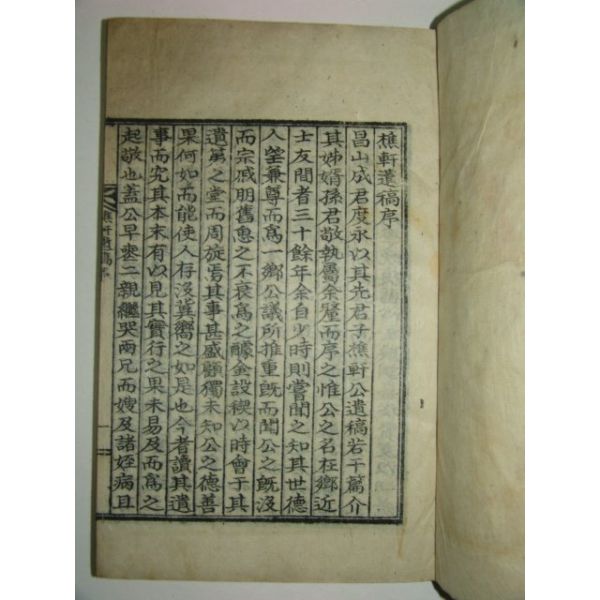 樵軒遺稿序
昌山成君度永以其先君子樵軒公遺稿若干篇介
其姊婿孫君敬執屬余釐而序之惟公之名在鄉近
士友間者三十餘年余自少時則嘗聞之知其世德
人望兼尊而爲一鄉公議所推重旣而聞公之旣沒
而宗戚朋舊愈之不衰爲之醵金設稧以時會于其
遺第之堂而周旋焉其事甚盛顧獨未知公之德善
果何如而能使人存沒冀嚮之如是也今者讀其遺
事而究其本末有以見其實行之果未易及而爲之
起敬也蓋公早喪二親繼哭兩兄而嫂及諸姪病且
樵軒遺稿序
一